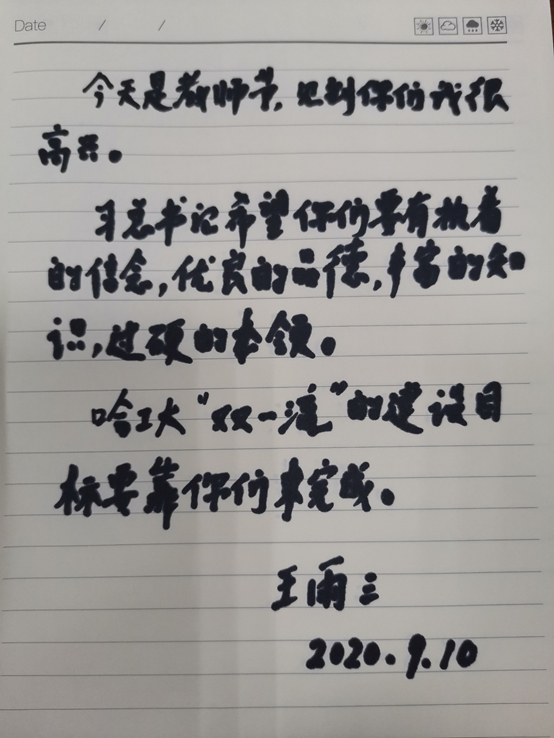 Date / /
今天是教师节,见到你们我很
高兴。
习总书记希望你们要有执着
的信念,优良的品德,丰富的知
识,过硬的本领。
哈工大“双一流”的建设目
标要靠你们来完成。
王雨三
2020.9.10